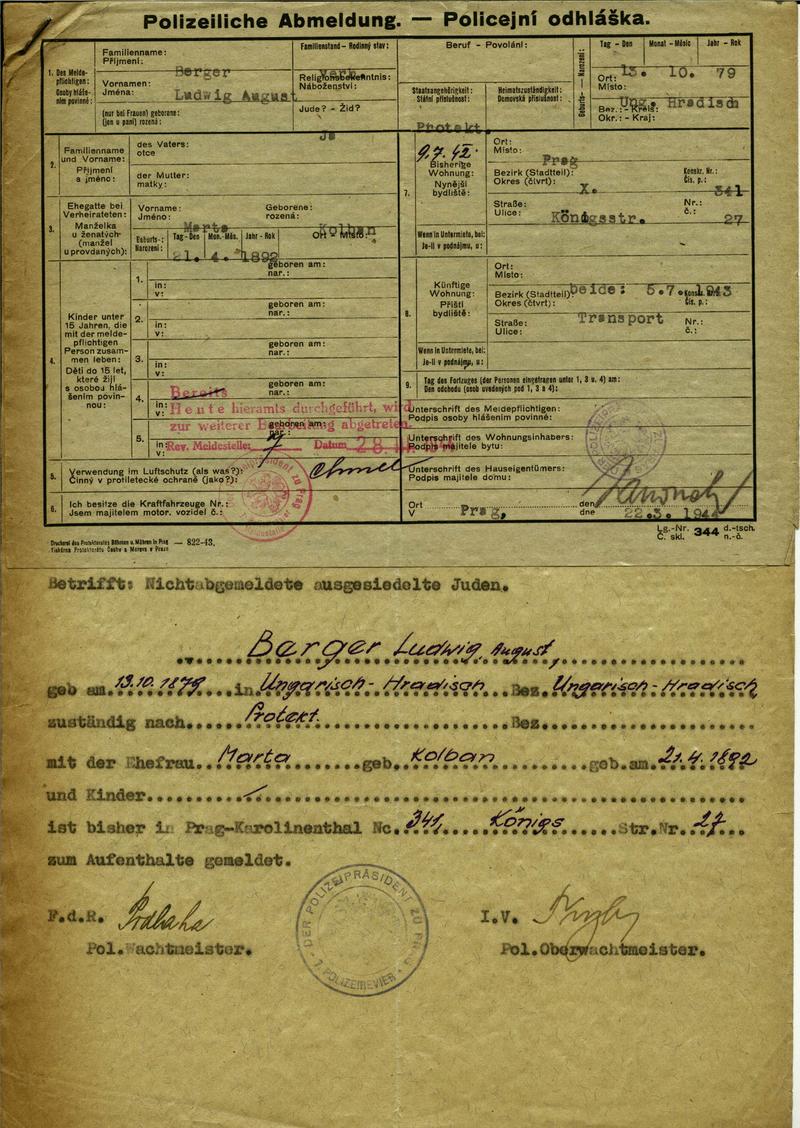 Polizeiliche Abmeldung. — Policejní odhláška.
1. Des Meldepflichtigen: Osoby hlášením povinné:
Familienname: Příjmení: Berger
Familienstand - Rodinný stav: verh.
Vornamen: Jména: Ludwig August
Religionsbekenntnis: Náboženství:
(nur bei Frauen) geborene: (jen u paní) rozená:
Jude? - Žid? Ja
Beruf - Povolání:
Staatsangehörigkeit: Státní příslušnost: Protekt.
Heimatszuständigkeit: Domovská příslušnost:
Geburts- — Narození:
Tag - Den Monat - Měsíc Jahr - Rok
13. 10. 79
Ort: Místo: Ung. Hradisch
Bez.: - Kreis: Okr.: - Kraj:
2. Familienname und Vorname: Příjmení a jméno:
des Vaters: otce
der Mutter: matky:
3. Ehegatte bei Verheirateten: Manželka u ženatých (manžel u provdaných):
Vorname: Jméno: Marta
Geborene: rozená: Kolban
Geburts- Narození: Tag - Den Mon.-Měs. Jahr - Rok Ort - Místo:
21. 4. 1892
4. Kinder unter 15 Jahren, die mit der meldepflichtigen Person zusammen leben: Děti do 15 let, které žijí s osobou hlášením povinnou:
1. geboren am: nar.:
in: v:
2. geboren am: nar.:
in: v:
3. geboren am: nar.:
in: v:
4. geboren am: nar.:
in: v:
5. geboren am: nar.:
in: v:
Bereits
Heute hieramts durchgeführt, wird
zur weiterer Bearbeitung abgetreten.
Rev. Meldestelle: 7 Datum 28.
5. Verwendung im Luftschutz (als was?): Činný v protiletecké ochraně (jako?):
6. Ich besitze die Kraftfahrzeuge Nr.: Jsem majitelem motor. vozidel č.:
7. 9.7.42 Bisherige Wohnung: Nynější bydliště:
Ort: Místo: Prag
Bezirk (Stadtteil): Okres (čtvrť): X.
Konskr. Nr.: Čís. p.: 341
Straße: Ulice: Königsstr.
Nr.: č.: 27
Wenn in Untermiete, bei: Je-li v podnájmu, u:
8. Künftige Wohnung: Příští bydliště:
Ort: Místo:
Bezirk (Stadtteil): Okres (čtvrť): beide: 5.7.1943
Konskr. Nr.: Čís. p.:
Straße: Ulice: Transport
Nr.: č.:
Wenn in Untermiete, bei: Je-li v podnájmu, u:
9. Tag des Fortzuges (der Personen eingetragen unter 1, 3 u. 4) am: Den odchodu (osob uvedených pod 1, 3 a 4):
Unterschrift des Meldepflichtigen: Podpis osoby hlášením povinné:
Unterschrift des Wohnungsinhabers: Podpis majitele bytu:
Unterschrift des Hauseigentümers: Podpis majitele domu:
Ort V Prag, den dne 22.3.1944
Druckerei des Protektorates Böhmen u. Mähren in Prag — 822-43.
Tiskárna Protektorátu Čechy a Morava v Praze
Lg.-Nr. Č. skl. 344 d.-tsch. n.-č.
Betrifft: Nichtabgemeldete ausgesiedelte Juden.
Berger Ludwig August,
geb am. 13.10.1879 in Ungarisch-Hradisch Bez. Ungarisch-Hradisch
zuständig nach Protekt. Bez.
mit der Ehefrau. Marta geb. Kolban geb.am. 21.4.1892
und Kinder
ist bisher in Prag-Karolinenthal Nc. 341, Königs Str.Nr. 27
zum Aufenthalte gemeldet.
F.d.R. I.V.
Pol.Wachtmeister. Pol.Oberwachtmeister.
DER POLIZEIPRÄSIDENT ZU PRAG
7 POLIZEIREVIER